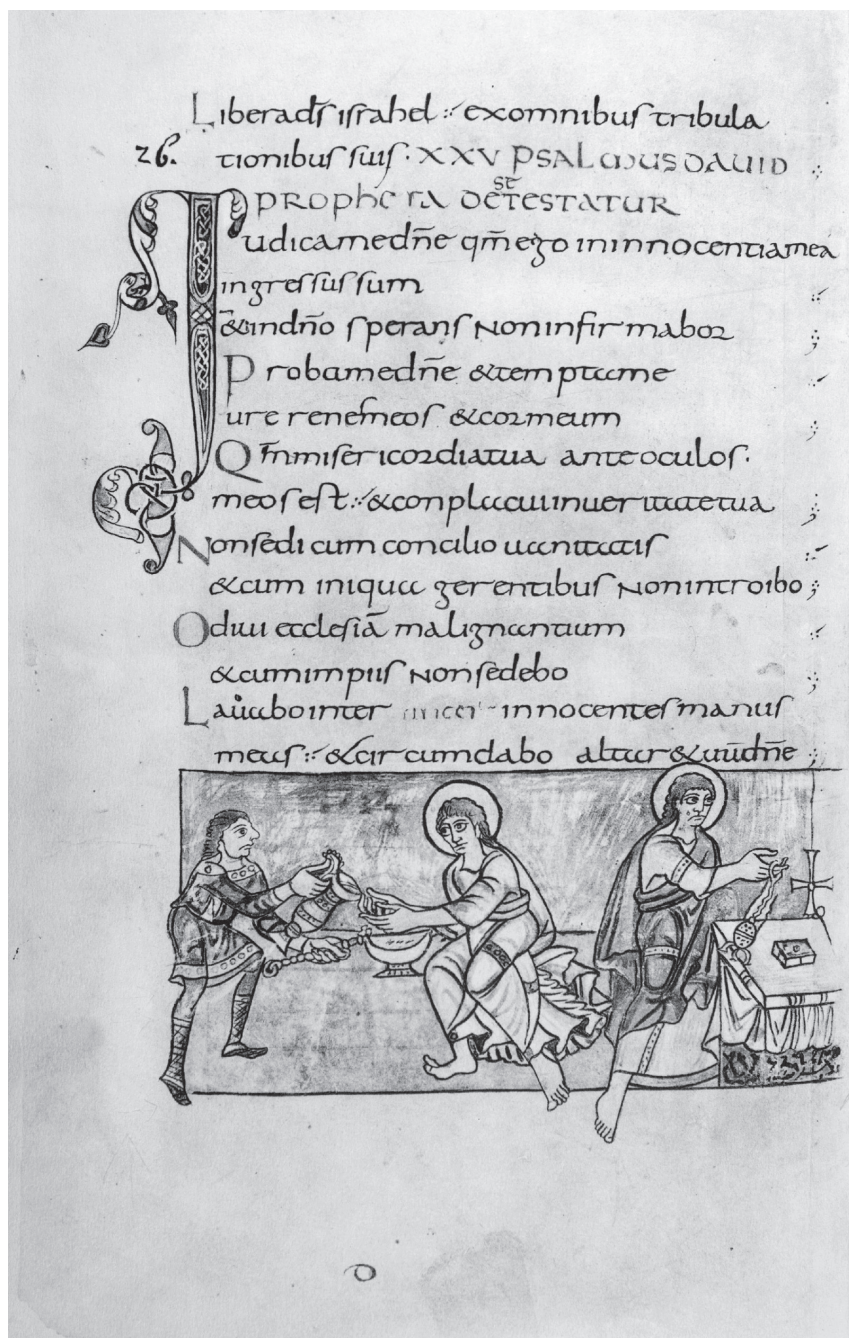 Liberad̄s israhel · exomnibus tribula
26. tionibus suis · XXV PSALMUS DAUID
PROPHETA DETESTATUR
st
Iudicamedn̄e qm̄ ego in innocentiamea
ingressus sum
& indn̄o sperans Non infirmabor
Probamedn̄e & temptame
ure renes meos & cor meum
Qm̄ misericordiatua ante oculos ·
meos est : & conplacui inueritatetua
Non sedi cum concilio uanitatis
& cum iniqua gerentibus Non introibo
Odiui ecclesiā malignantium
& cum impiis Non sedebo
Lauabo inter innocentes manus
meas : & circumdabo altar & uūdn̄e